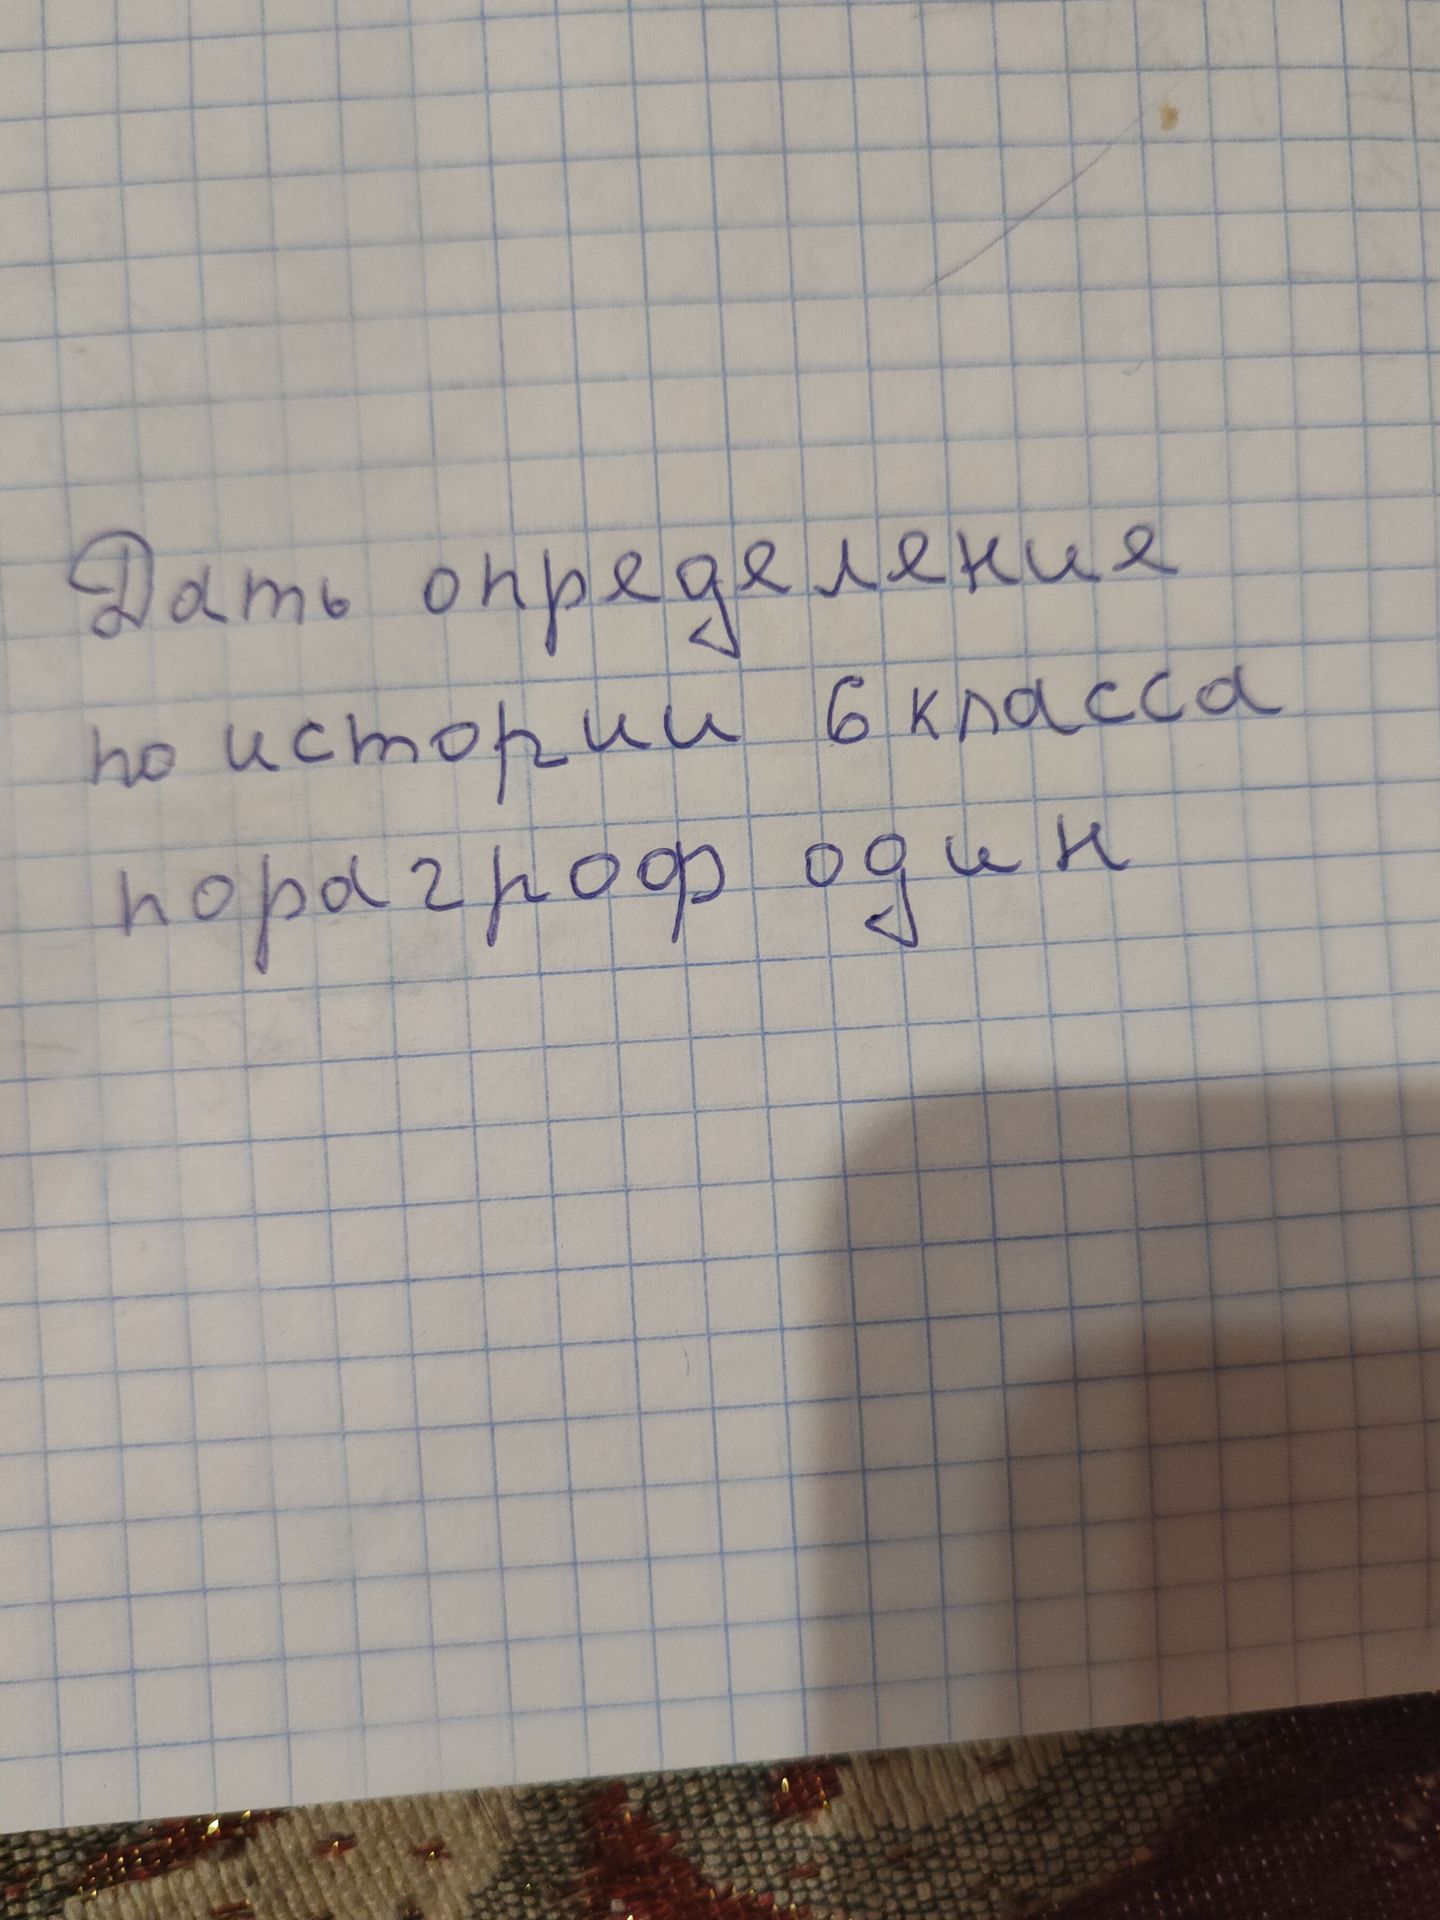 Дать определение
по истории 6 класса
порагроф один